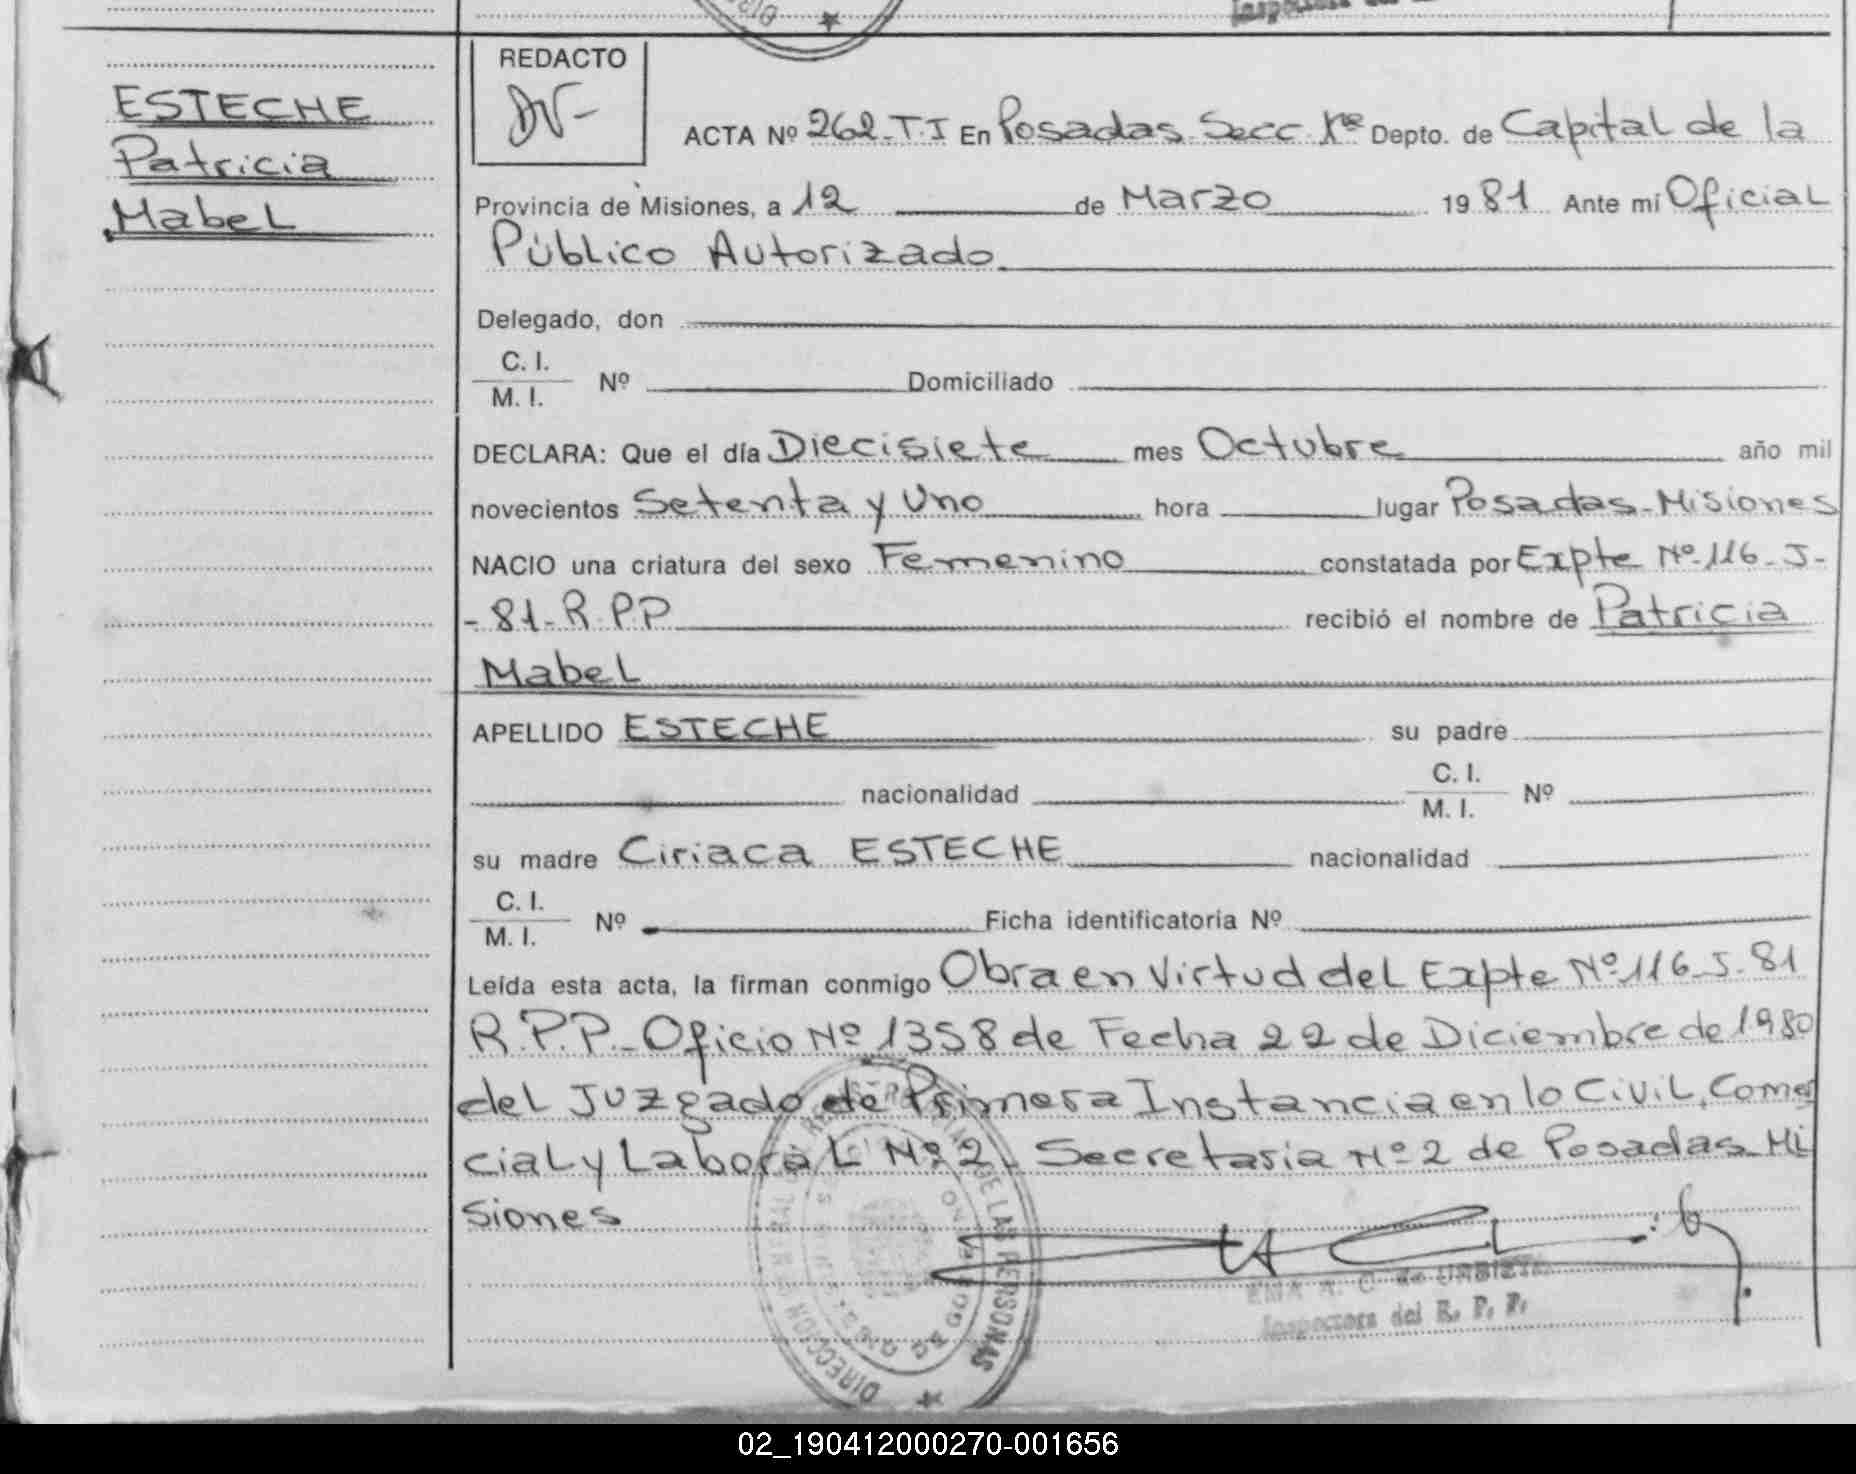 ESTECHE
Patricia
Mabel
REDACTO
ACTA Nº 262-T.I En Posadas Secc. 1ra Depto. de Capital de la
Provincia de Misiones, a 12 de Marzo 1981 Ante mí Oficial
Público Autorizado
Delegado, don
C. I.
M. I. Nº Domiciliado
DECLARA: Que el día Diecisiete mes Octubre año mil
novecientos Setenta y Uno hora lugar Posadas-Misiones
NACIO una criatura del sexo Femenino constatada por Expte Nº 116-J-
-81-R.P.P recibió el nombre de Patricia
Mabel
APELLIDO ESTECHE su padre
nacionalidad C. I.
M. I. Nº
su madre Ciriaca ESTECHE nacionalidad
C. I.
M. I. Nº Ficha identificatoria Nº
Leída esta acta, la firman conmigo Obra en Virtud del Expte Nº 116-J-81
R.P.P.- Oficio Nº 1358 de Fecha 22 de Diciembre de 1980
del Juzgado de Primera Instancia en lo Civil, Comer
cial y Laboral Nº 2. Secretaria Nº 2 de Posadas Mi
siones
EMA A. C. de URBIETA
Inspectora del R. P. P.
02_190412000270-001656